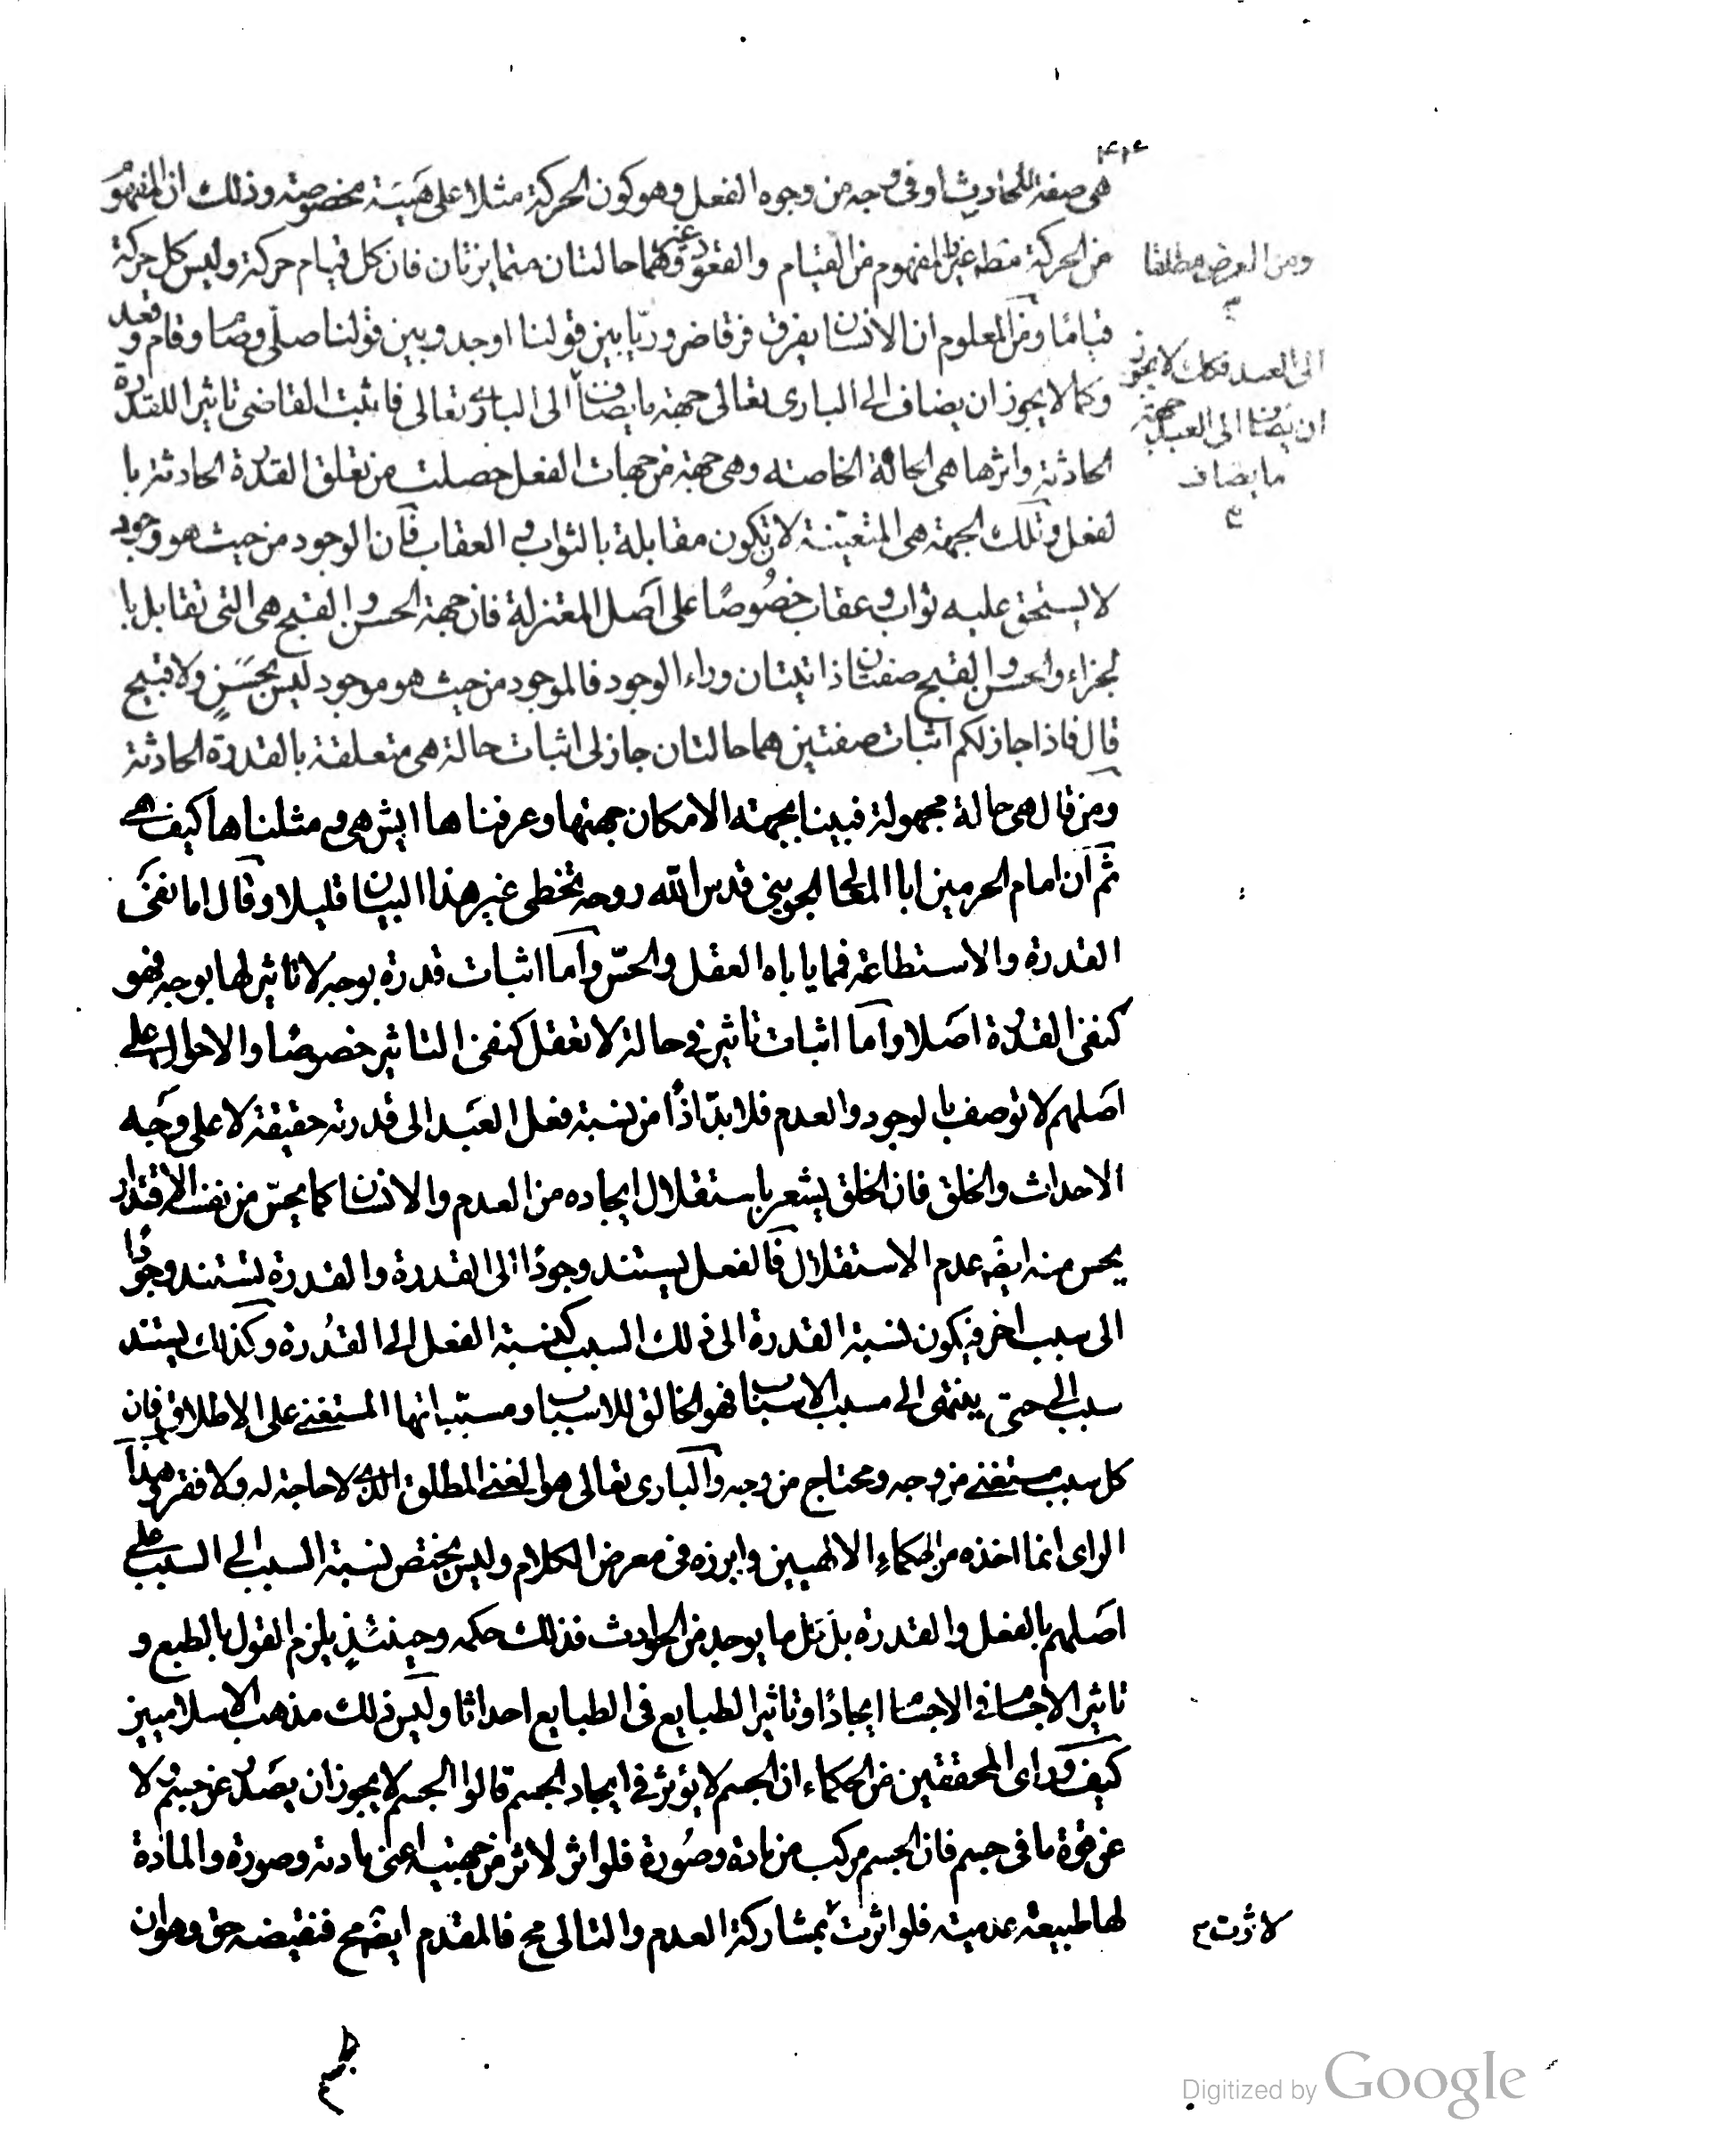 هى صفة للحادث او فى وجه من وجوه الفعل وهو كون الحركة مثلا على هيئة مخصوصة وذلك ان المفهوم
من الحركة مطـ غير المفهوم من القيام والقعود غير وهما حالتان متمايزتان فان كل قيام حركة وليس كل حركة
ومن العرض مطلقا
قياما ومن المعلوم ان الانسان يفرق فرقا ضروريّا بين قولنا اوجد وبين قولنا صلّى وصام وقام وقعد
الى العبد فكذلك لا يجوز
وكما لا يجوز ان يضاف الى البارى تعالى جهة ما يضاف الى البارى تعالى فاثبت القاضى تاثيرا للقدرة
ان يضاف الى العبد جهة
ما يضاف
الحادثة واثرها هى الحالة الخاصته وهى جهة من جهات الفعل حصلت من تعلق القدرة الحادثة با
لفعل وتلك الجهة هى المتعيّنة لا تكون مقابلة بالثواب و العقاب فان الوجود من حيث هو وجود
لا يستحق عليه ثواب و عقاب خصُوصًا على اصل المعتزلة فان جهة الحسن و القبح هى التى تقابل با
لجزاء والحسن و القبح صفتان ذاتيتان وراء الوجود فالموجود من حيث هو موجود ليس بحَسَنٍ ولا قبيح
قال فاذا جاز لكم اثبات صفتين هما حالتان جاز لى اثبات حالة هى متعلقة بالقدرة الحادثة
ومن قال هى حالة مجهولة فبينا بجهة الامكان جهتها وعرفناها ايش هى و مثلناها كيف هى
ثم ان امام الحرمين ابا المعالى الجوينى قدس الله روحه تخطى غير هذا البيان قليلا وقال اما نفى
القدرة والاستطاعة فما ياباه العقل و الحسّ واما اثبات قدرة بوجه لا تاثير لها بوجه فهو
كنفى القدرة اصلا واما اثبات تاثير فى حالة لا تعقل كنفى التاثير خصوصًا والاحوال على
اصلهم لا توصف بالوجود والعدم فلا بدّ اذًا من نسبة فعل العبد الى قدرته حقيقة لا على وجه
الاحداث والخلق فان الخلق يشعر باستقلال ايجاده من العدم والانسان كما يحسّ من نفسه الاقتدار
يحس منه ايضـ عدم الاستقلال فالفعل يستند وجودًا الى القدرة والقدرة تستند وجودًا
الى سبب اخر فيكون نسبة القدرة الى ذلك السبب كنسبة الفعل الى القدرة وكذلك يستند
سبب الى حتى ينتهى الى مسبب الاسباب فهو الخالق للاسباب ومسبّباتها المستغنى على الاطلاق فان
كل سبب مستغنى من وجه ومحتاج من وجه والبارى تعالى هو الغنى المطلق الذى لا حاجة له ولا فقر وهذا
الراى انما اخذه من الحكماء الالهيين وابرزه فى معرض الكلام وليس يختص نسبة السبب الى السبب على
اصلهم بالفعل والقدرة بل كل ما يوجد من الحوادث فذلك حكمه وحينئذٍ يلزم القول بالطبع و
تاثير الاجسام فى الاجسام ايجادًا وتاثير الطبايع فى الطبايع احداثا وليس ذلك مذهب الاسلاميين
كيف وراى المحققين من الحكماء ان الجسم لا يؤثر فى ايجاد الجسم قالوا الجسم لا يجوز ان يصدر عن جسم و لا
عن قوة ما فى جسم فان الجسم مركب من مادة وصُورة فلو اثر لاثر من جهتيه اعنى مادته وصورة والمادة
لها طبيعة عدمية فلو اثرت بمشاركة العدم والتالى مح فالمقدم ايضـ مح فنقيضه حق وهو ان
لاثرت
Digitized by Google